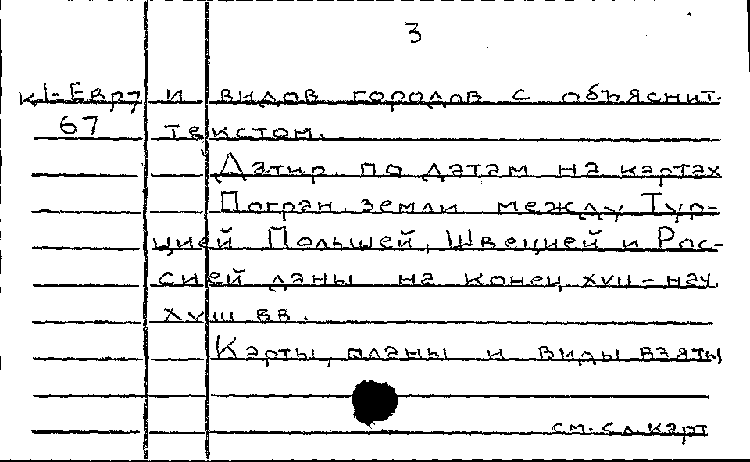 3
К1-Евр7 и видов городов с объяснит.
67 текстом.
Датир. по датам на картах
Погран. земли между Тур-
цией Польшей, Швецией и Рос-
сией даны на конец XVII-нач.
XVIII вв.
Карты, планы и виды взяты
см. сл. карт